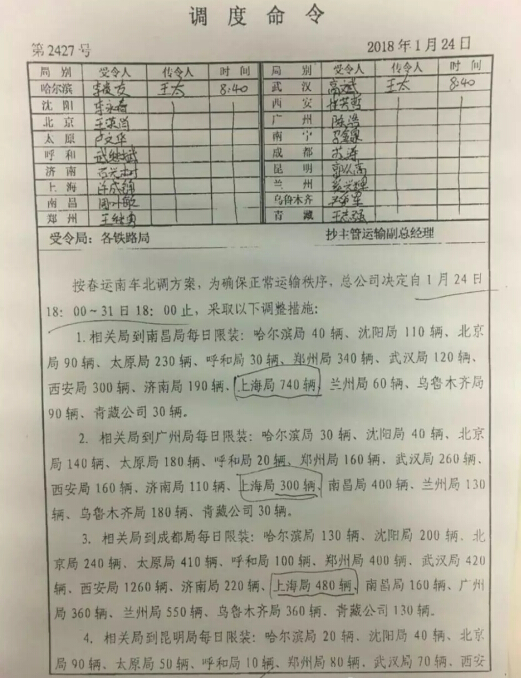 调度命令
第2427号 2018年1月24日
局别 受令人 传令人 时间 局别 受令人 传令人 时间
哈尔滨 王太 8:40 武汉 王太 8:40
沈阳 西安
北京 广州
太原 南宁
呼和 成都
济南 昆明
上海 兰州
南昌 乌鲁木齐
郑州 青藏
受令局：各铁路局 抄主管运输副总经理
按春运南车北调方案，为确保正常运输秩序，总公司决定自1月24日
18：00~31日18：00止，采取以下调整措施：
1.相关局到南昌局每日限装：哈尔滨局40辆、沈阳局110辆、北京
局90辆、太原局230辆、呼和局30辆、郑州局340辆、武汉局120辆、
西安局300辆、济南局190辆、上海局740辆、兰州局60辆、乌鲁木齐局
90辆、青藏公司30辆。
2. 相关局到广州局每日限装：哈尔滨局30辆、沈阳局40辆、北京
局140辆、太原局180辆、呼和局20辆、郑州局160辆、武汉局260辆、
西安局160辆、济南局110辆、上海局300辆、南昌局400辆、兰州局130
辆、乌鲁木齐局180辆、青藏公司30辆。
3. 相关局到成都局每日限装：哈尔滨局130辆、沈阳局200辆、北
京局240辆、太原局410辆、呼和局100辆、郑州局400辆、武汉局420
辆、西安局1260辆、济南局220辆、上海局480辆、南昌局160辆、广州
局360辆、兰州局550辆、乌鲁木齐局360辆、青藏公司130辆。
4. 相关局到昆明局每日限装：哈尔滨局20辆、沈阳局40辆、北京
局90辆、太原局50辆、呼和局10辆、郑州局80辆、武汉局70辆、西安